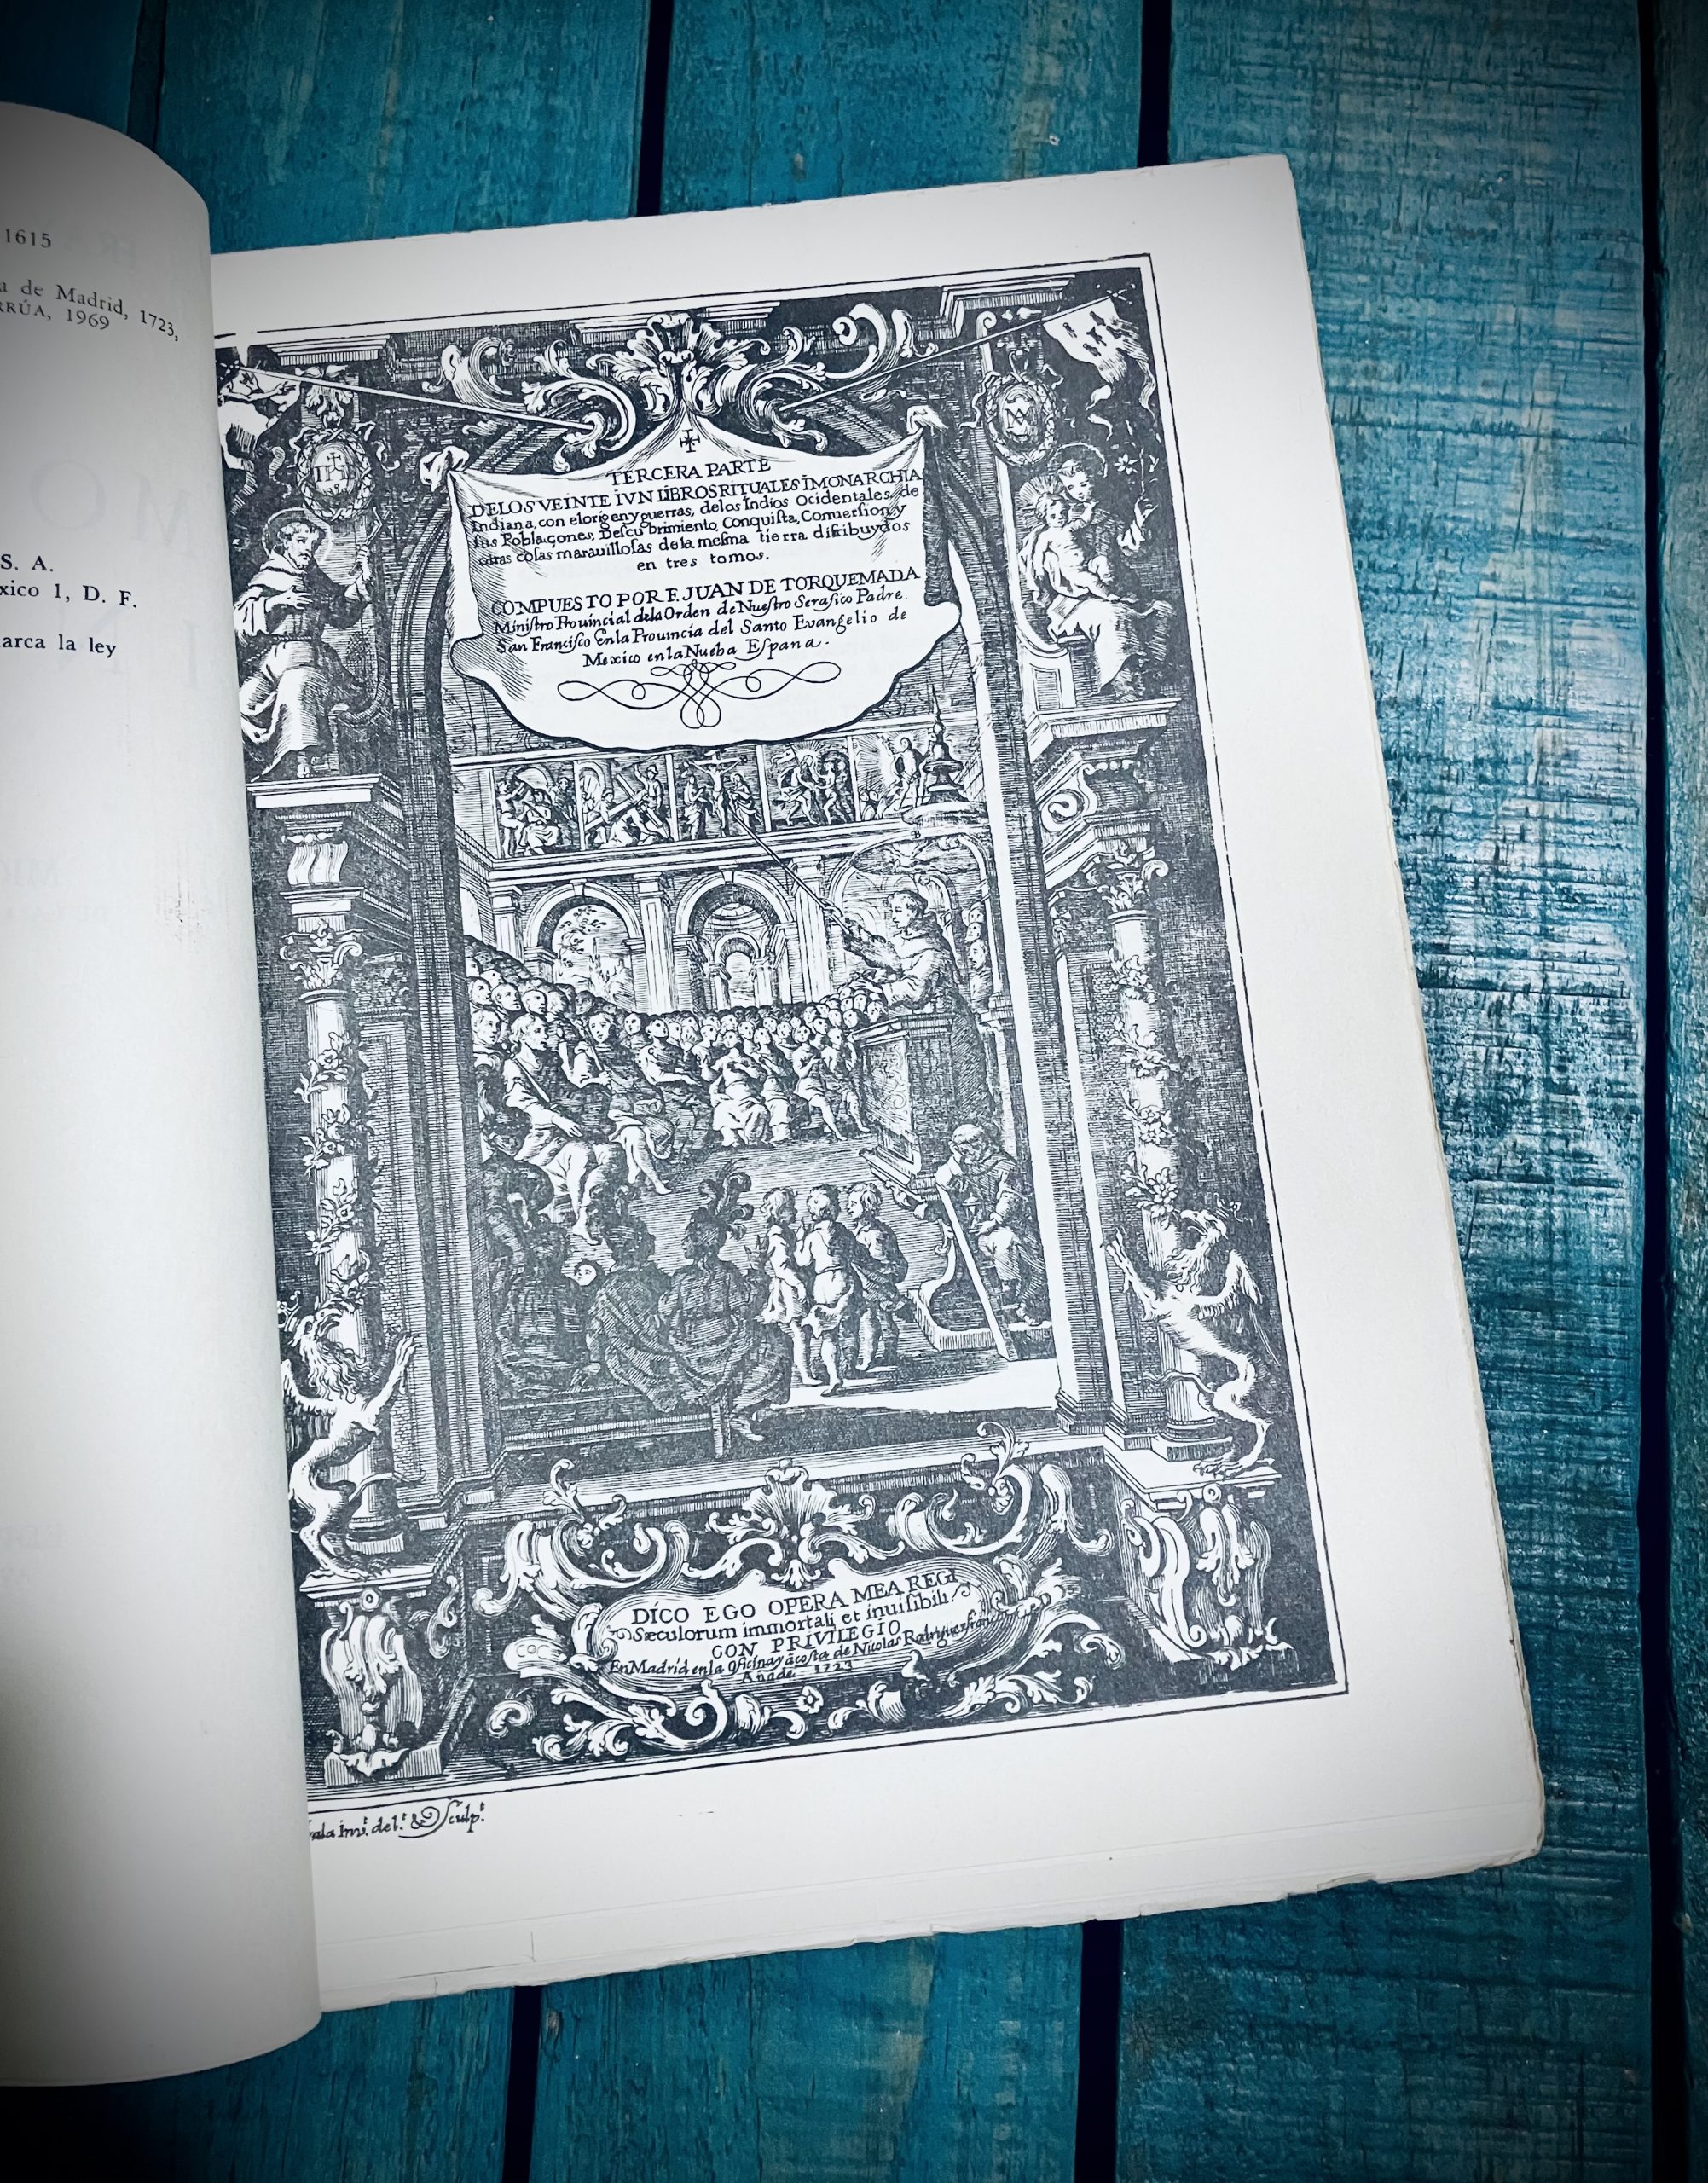 1615
a de Madrid, 1723,
RRÚA, 1969
S. A.
xico 1, D. F.
arca la ley
TERCERA PARTE
DE LOS VEINTE I VN LIBROS RITUALES I MONARCHIA
Indiana, con el origen y guerras, de los Indios Ocidentales, de
sus Poblaçones, Descubrimiento, Conquista, Conuersion, y
otras cosas marauillosas de la mesma tierra distribuydos
en tres tomos.
COMPUESTO POR F. JUAN DE TORQUEMADA
Ministro Prouincial de la Orden de Nuestro Serafico Padre.
San Francisco En la Prouincia del Santo Evangelio de
Mexico en la Nueba Espana.
DICO EGO OPERA MEA REGI
Sæculorum immortali et inuisibili.
CON PRIVILEGIO
En Madrid en la Oficina y à costa de Nicolas Rodriguez
Año de 1723
Inv.t del.t & Sculp.t